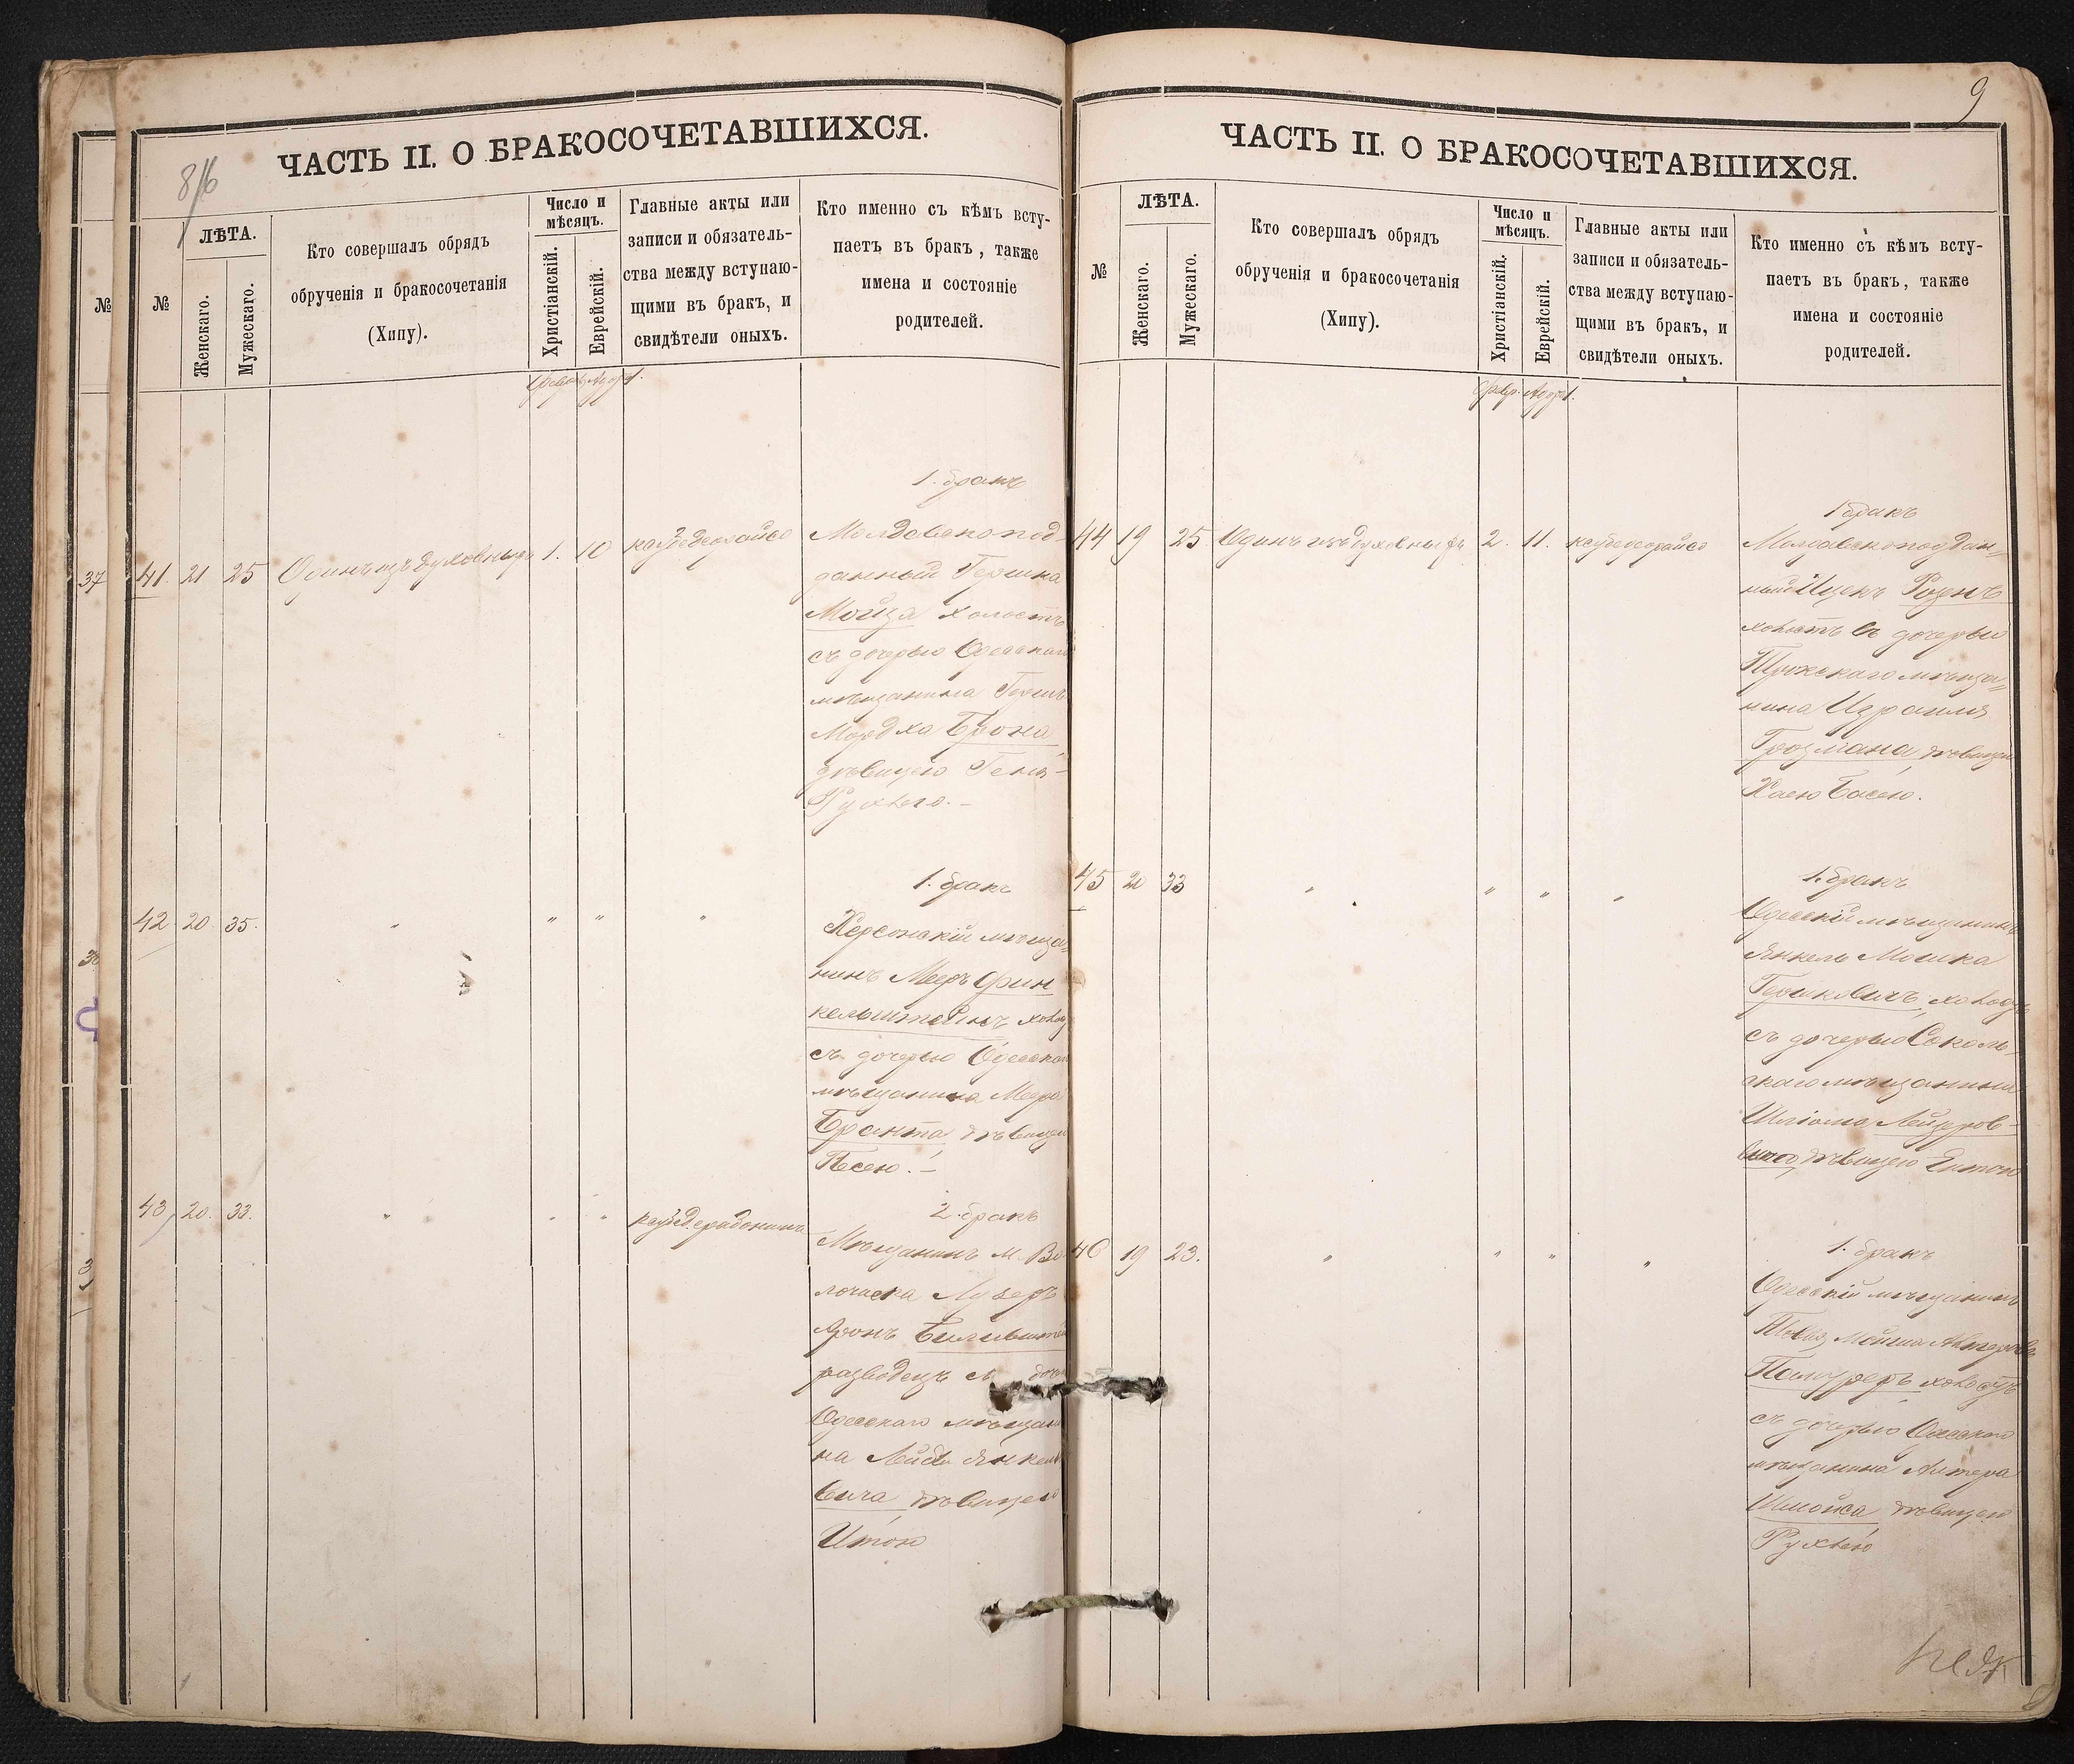 ЧАСТЬ II. О БРАКОСОЧЕТАВШИХСЯ.
8/16
№
№
ЛѢТА.
Женскаго.
Мужескаго.
Кто совершалъ обрядъ
обрученія и бракосочетанія
(Хипу).
Число и
мѣсяцъ.
Христіанскій.
Еврейскій.
Главные акты или
записи и обязатель-
ства между вступаю-
щими въ бракъ, и
свидѣтели оныхъ.
Кто именно съ кѣмъ всту-
паетъ въ бракъ, также
имена и состояніе
родителей.
37
41. 21 25 Одинъ изъ духовныхъ 1. 10
1. бракъ
Молдавскопод-
данный Гершка
Мойза холостъ
съ дочерью Одесскаго
мѣщанина Герш
Мордха Брона
дѣвицею Геня-
Рухлею. -
42 20. 35. " " " "
1. бракъ
Херсонскій мѣща-
нинъ Мееръ Фин
кельштейнъ холос
съ дочерью Одесскаго
мѣщанина Меера
Бранта дѣвицею
Песею. -
43 20. 33. " " "
2. бракъ
Мѣщанинъ м. Во
лочиска Лузеръ
Аронъ
разводецъ
Одесскаго мѣщани
на Лейба Янкеле
вича дѣвицею
Итою
ЧАСТЬ II. О БРАКОСОЧЕТАВШИХСЯ.
9
№
ЛѢТА.
Женскаго.
Мужескаго.
Кто совершалъ обрядъ
обрученія и бракосочетанія
(Хипу).
Число и
мѣсяцъ.
Христіанскій.
Еврейскій.
Главные акты или
записи и обязатель-
ства между вступаю-
щими въ бракъ, и
свидѣтели оныхъ.
Кто именно съ кѣмъ всту-
паетъ въ бракъ, также
имена и состояніе
родителей.
44 19 25 Одинъ изъ духовныхъ 2. 11.
1 бракъ
Молдавскоподдан-
ный Ицекъ Розенъ
холостъ съ дочерью
мѣща-
нина Израиля
Грозмана дѣвицею
Хаею Басею.
45 20 33 " " " "
1. бракъ
Одесскій мѣщанинъ
Янкель Мошка
Гершковичъ холостъ
съ дочерью Соколь-
скаго мѣщанина
Шліома Лейзеров-
дѣвицею Ентою
46 19 23. " " " "
1. бракъ
Одесскій мѣщанинъ
холостъ
съ дочерью Одесскаго
мѣщанина Алтера
Шмойса дѣвицею
Рухлею